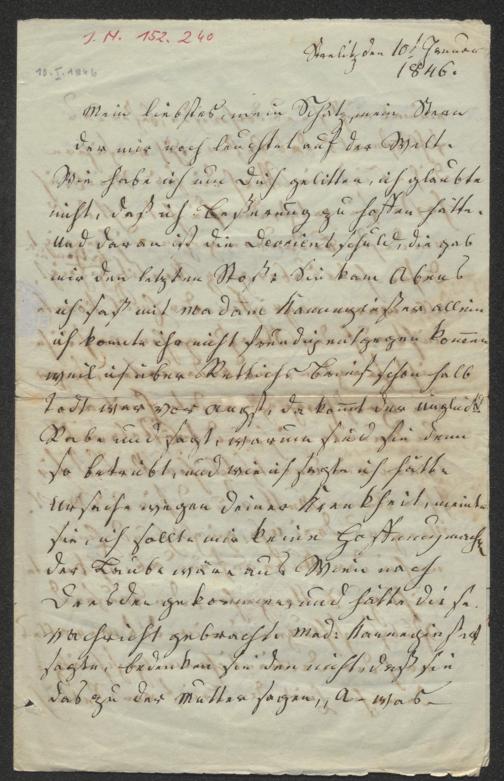 J. N. 152.240
10.I.1846
Strelitz den 10t Januar
1846.
Mein liebstes, mein Schatz, mein Stern
der mir noch leuchtet auf der Welt.
Wie habe ich um dich gelitten, ich glaubte
nicht, daß ich Beßerung zu hoffen hätte.
Und daran ist die Devrient schuld, die gab
mir den letzten Stoß. Sie kam Abens
ich saß mit Madam Kannengießer allein
ich konnte ihr nicht freundig entgegen kommen
weil ich über Rettichs Brief schon halb
todt war vor angst, da kommt der unglücks
Rabe und sagt, warum sind sie denn
so betrübt, und wie ich sagte ich hätte
Ursache wegen deiner Krankheit, meinte
sie, ich sollte mir keine Hoffnung mache
der Laube wäre aus Wien nach
Dresden gekommen und hätte diese
Nachricht gebracht. Mad: Kannengießer
sagte, bedenken sie den nicht, daß sie
das zu der Mutter sagen, „A - was -